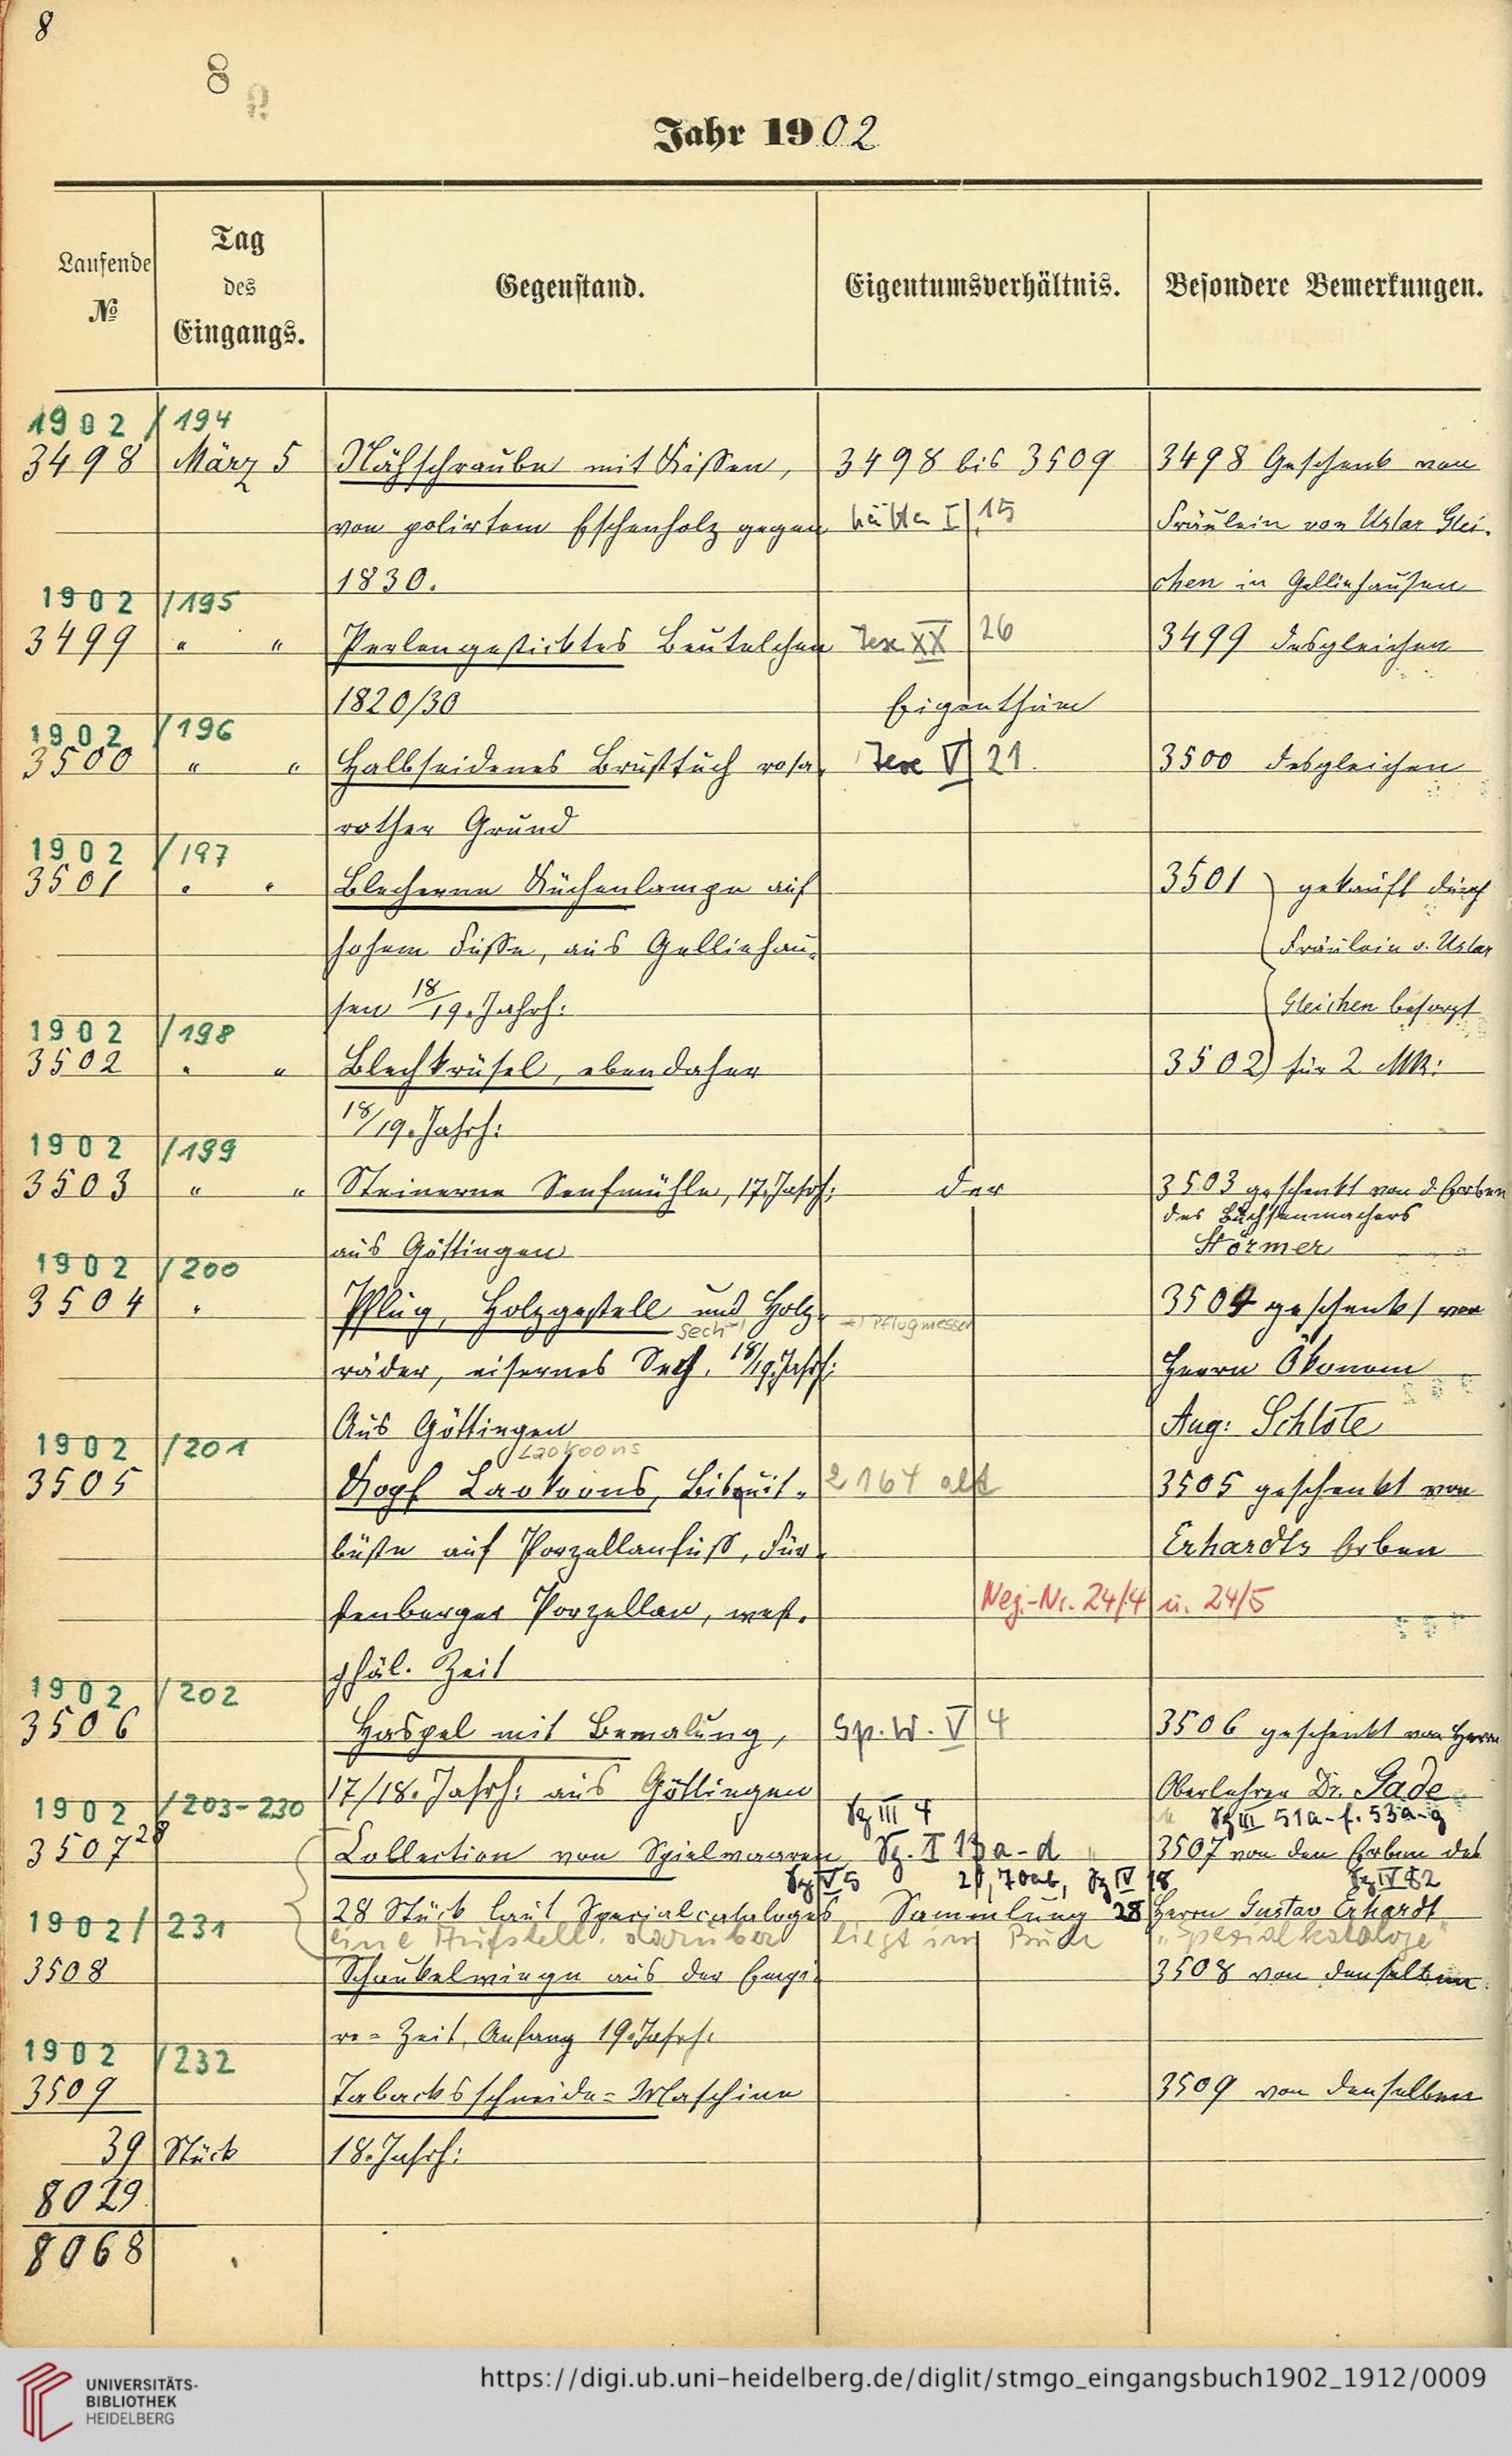 8
8
Jahr 1902
Laufende
№
Tag
des
Eingangs.
Gegenstand.
Eigentumsverhältnis.
Besondere Bemerkungen.
1902 / 194
3498 März 5 Nähschraube mit Kissen, 3498 bis 3509 3498 Geschenk von
von polirtem Eschenholz gegen I 15 Fräulein von Uslar Glei-
1830. chen in Gelliehausen
1902 / 195
3499 " " Perlengesticktes Beutelchen Tex XX 26 3499 desgleichen
1820/30 Eigenthum
1902 / 196
3500 " " Halbseidenes Brusttuch rosa- Tex V 21. 3500 desgleichen
rother Grund
1902 / 197
3501 " " Blecherne Küchenlampe auf 3501 gekauft durch
hohem Fusse, aus Gelliehau- Fräulein v. Uslar
sen 18/19. Jahrh: Gleichen besorgt
1902 / 198
3502 " " Blechkrüsel, ebendaher 3502 für 2 Mk:
18/19. Jahrh:
1902 / 199
3503 " " Steinerne Senfmühle, 17. Jahrh: der 3503 geschenkt von d. Erben
des Büchsenmachers
aus Göttingen Störmer
1902 / 200
3504 " Pflug, Holzgestell und Holz- 3504 geschenkt von
Sech +) +) Pflugmesser
räder, eisernes Sech. 18/19. Jahrh: Herrn Ökonom
Aus Göttingen Aug: Schlote
1902 / 201 Laokoons
3505 Kopf Laokoons, Biskuit- 2164 alt 3505 geschenkt von
büste auf Porzellanfuss, Für- Erhardts Erben
stenberger Porzellan, west- Neg.-Nr. 24/4 u. 24/5
phäl. Zeit
1902 / 202
3506 Haspel mit Bemalung, Sp. W. V 4 3506 geschenkt von Herrn
17/18. Jahrh: aus Göttingen Oberlehrer Dr. Gade
1902 / 203-230 III 4 III 51a-f. 53a-g
3507 28 Collection von Spielwaaren I 13 a-d 3507 von den Erben des
V 5 IV 18 IV 82
28 Stück laut Specialcataloges Sammlung 28 Herrn Gustav Erhardt
1902 / 231 eine Aufstell. darüber liegt im Buch "Spezialkataloge"
3508 Schaukelwiege aus der Empi- 3508 von denselben
re-Zeit, Anfang 19. Jahrh.
1902 / 232
3509 Tabacksschneide-Maschine 3509 von denselben
39 Stück 18. Jahrh:
8029
8068
UNIVERSITÄTS-
BIBLIOTHEK
HEIDELBERG
https://digi.ub.uni-heidelberg.de/diglit/stmgo_eingangsbuch1902_1912/0009